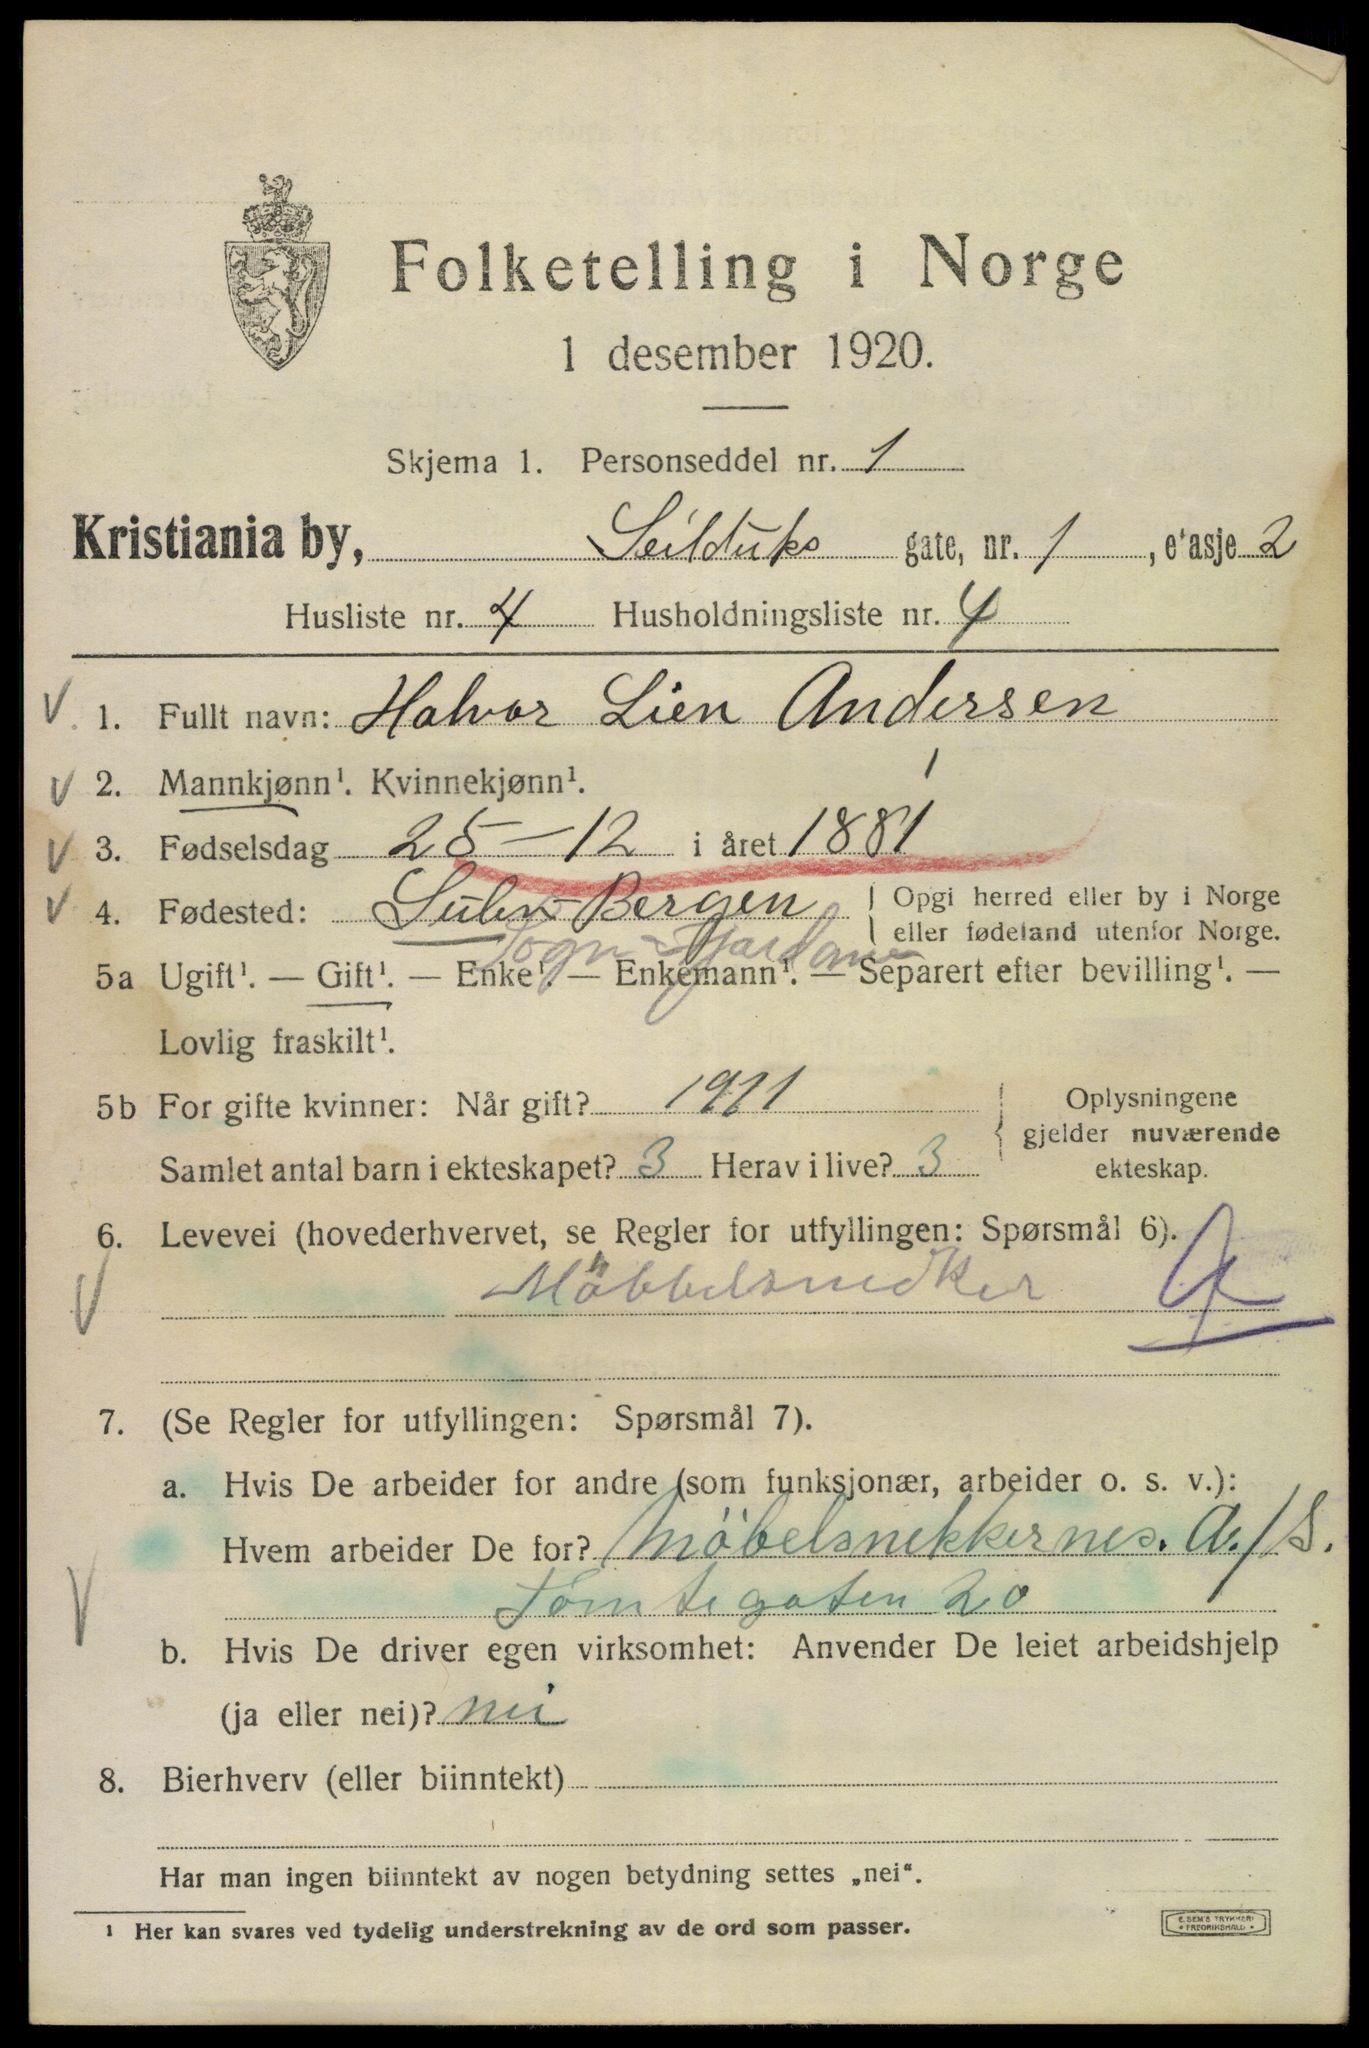 Folketelling i Norge
1 desember 1920.
Skjema 1. Personseddel nr. 1
Kristiania by, Seilduks gate, nr. 1, etasje 2
Husliste nr. 4 Husholdningsliste nr. 4
1. Fullt navn: Halvor Lien Andersen
2. Mannkjønn¹. Kvinnekjønn¹.
3. Fødselsdag 25-12 i året 1881
4. Fødested: Sulen Bergen Opgi herred eller by i Norge
eller fødeland utenfor Norge.
Sogn-Fjordane
5a Ugift¹. — Gift¹. — Enke¹. — Enkemann¹. — Separert efter bevilling¹. —
Lovlig fraskilt¹.
5b For gifte kvinner: Når gift? 1911 Oplysningene
gjelder nuværende
Samlet antal barn i ekteskapet? 3 Herav i live? 3 ekteskap.
6. Levevei (hovederhvervet, se Regler for utfyllingen: Spørsmål 6).
Möbbelsnedker
7. (Se Regler for utfyllingen: Spørsmål 7).
a. Hvis De arbeider for andre (som funksjonær, arbeider o. s. v.):
Hvem arbeider De for? Möbelsnekkernes. A./S.
Tomtegaten 20
b. Hvis De driver egen virksomhet: Anvender De leiet arbeidshjelp
(ja eller nei)? nei
8. Bierhverv (eller biinntekt)
Har man ingen biinntekt av nogen betydning settes „nei".
¹ Her kan svares ved tydelig understrekning av de ord som passer.
E. SEM'S TRYKKERI
FREDRIKSHALD